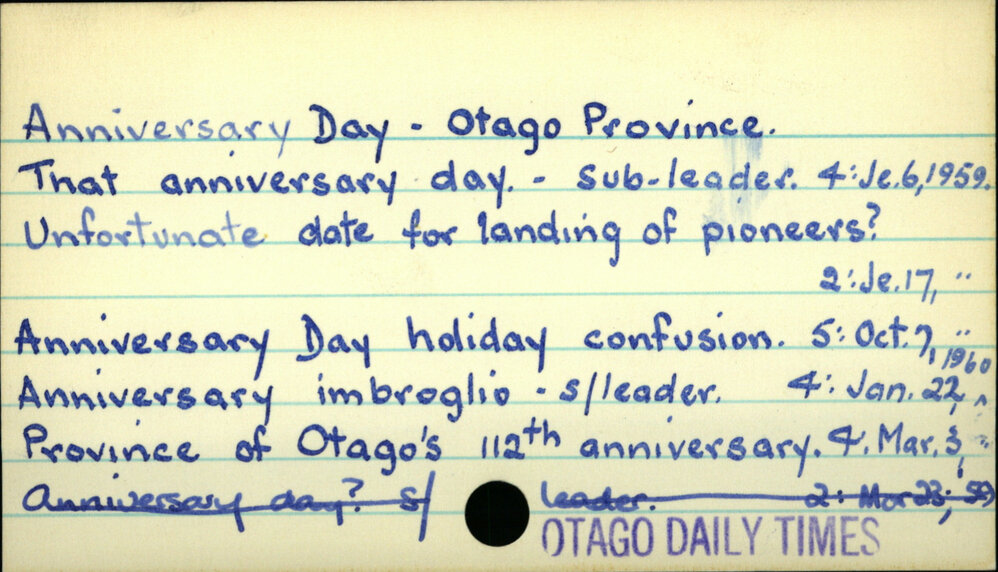 Anniversary Day - Otago Province.
That anniversary day. - sub-leader. 4:Je.6,1959.
Unfortunate date for landing of pioneers?
2:Je.17, "
Anniversary Day holiday confusion. 5: Oct.7, "
Anniversary imbroglio - s/leader. 4: Jan. 22, ^ 1960
Province of Otago's 112th anniversary. 4: Mar. 3, "
Anniversary day? s/ leader. 2: Mar 23, 59
OTAGO DAILY TIMES